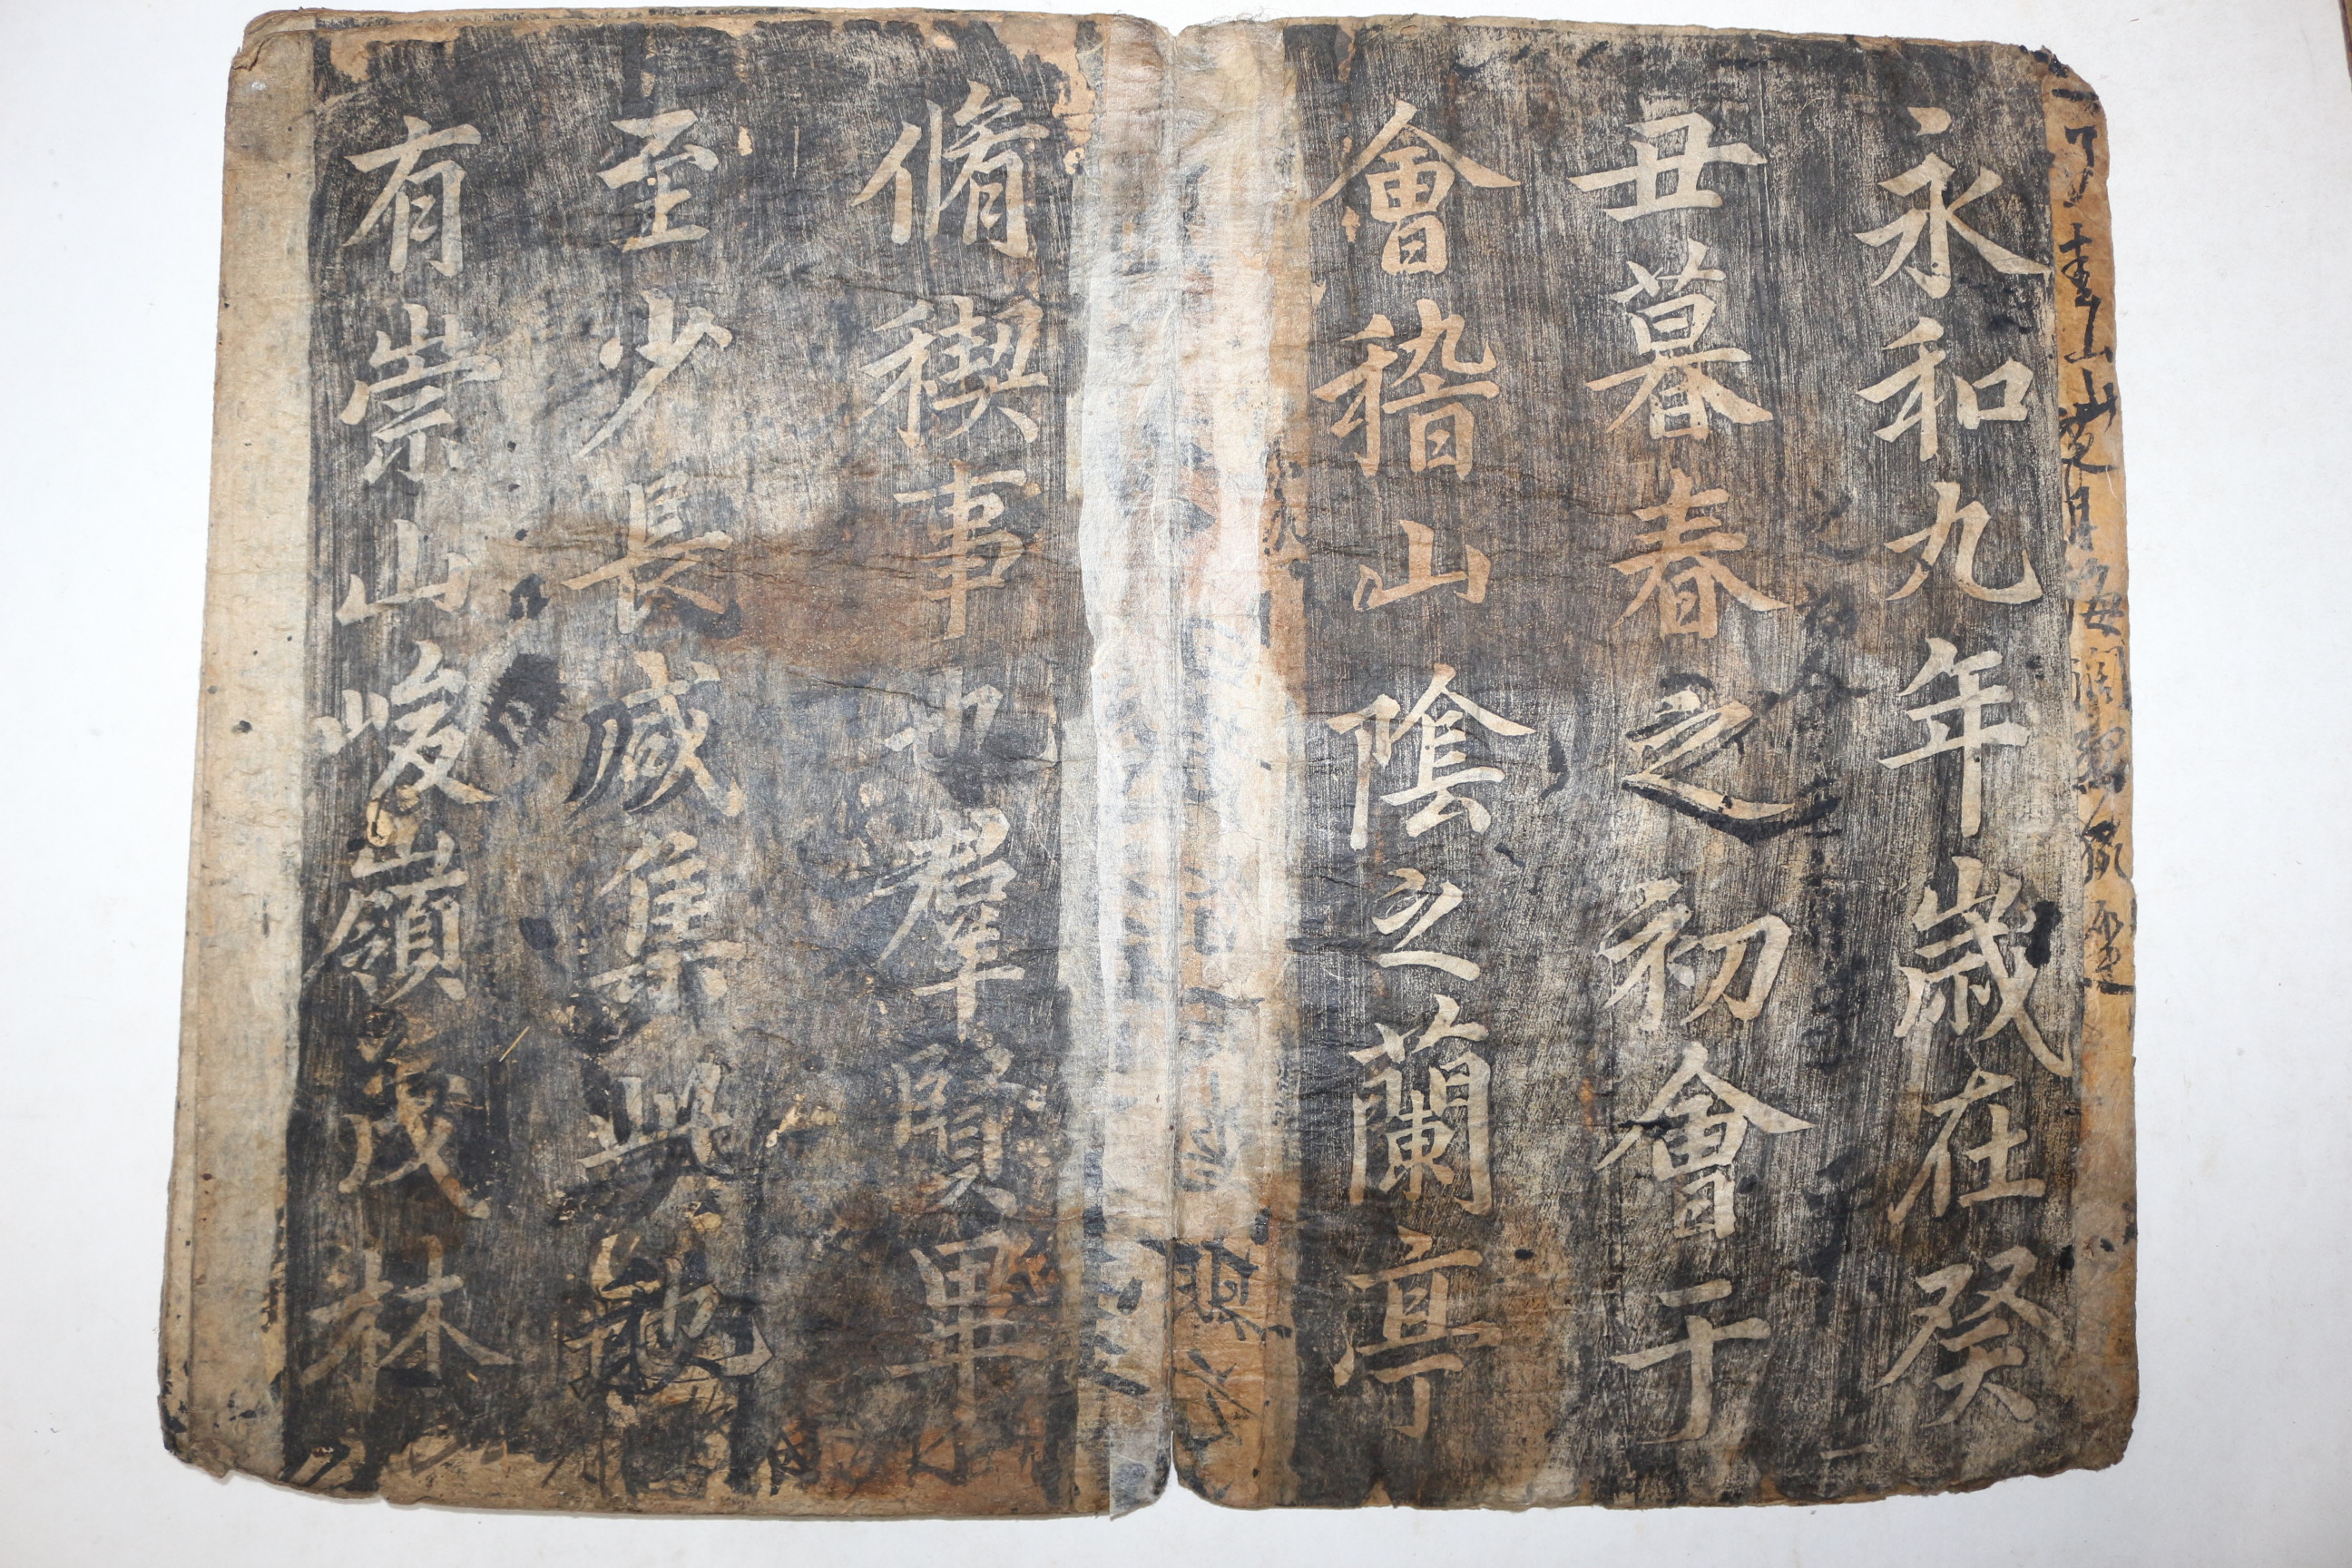 永和九年歲在癸
丑暮春之初會于
會稽山陰之蘭亭
脩稧事也羣賢畢
至少長咸集此地
有崇山峻嶺茂林